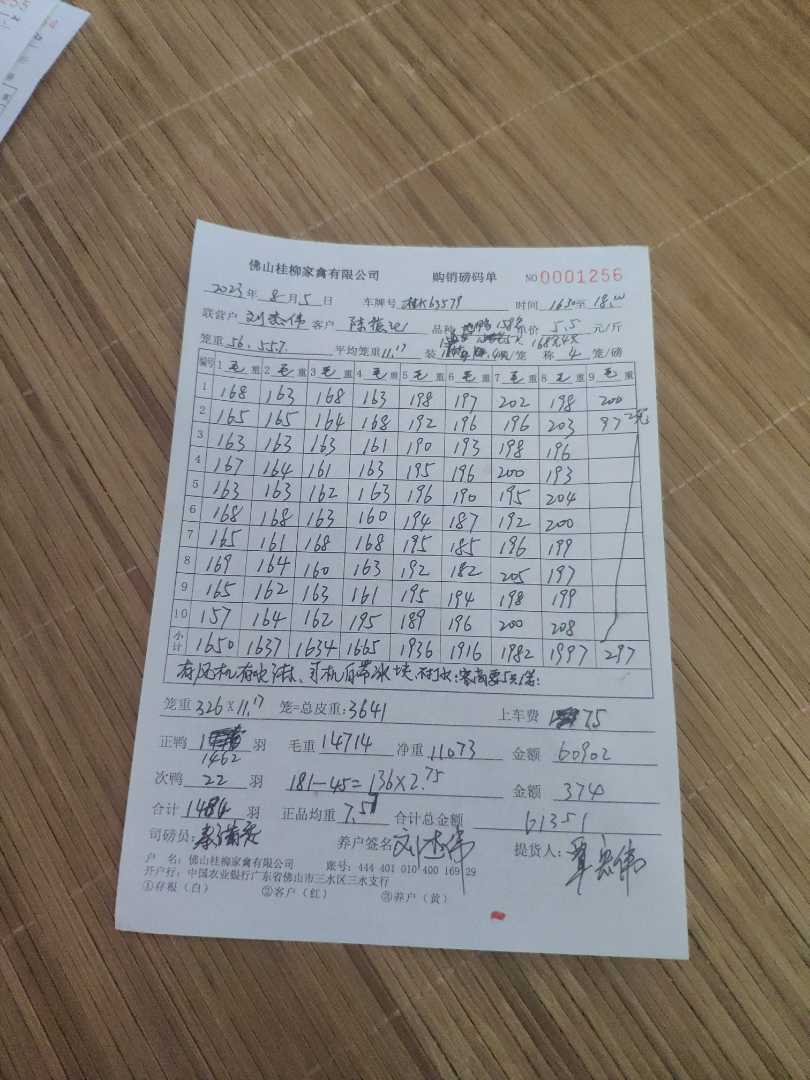 佛山桂柳家禽有限公司 购销磅码单 NO 0001256
2023年8月5日 车牌号 桂K63579 时间 1630至18.00
联营户 刘杰伟 客户 品种 单价 5.5 元/斤
笼重 56. 55.7. 平均笼重 11.17 装 只/笼 称 4 笼/磅
编号 1 毛 重 2 毛 重 3 毛 重 4 毛 重 5 毛 重 6 毛 重 7 毛 重 8 毛 重 9 毛 重
1 168 163 168 163 198 197 202 198 200
2 165 165 164 168 192 196 196 203 97 2笼
3 163 163 163 161 190 193 198 196
4 167 164 161 163 195 196 200 193
5 163 163 162 163 196 190 195 204
6 168 168 163 160 194 187 192 200
7 165 161 168 168 195 185 196 199
8 169 164 160 163 192 182 205 197
9 165 162 163 161 195 194 198 199
10 157 164 162 195 189 196 200 208
小计 1650 1637 1634 1665 1936 1916 1982 1997 297
有风机有吹淋、司机自带冰块
笼重 326×11.17 笼=总皮重: 3641 上车费 75
正鸭 1462 羽 毛重 14714 净重 11073 金额 60902
次鸭 22 羽 181-45=136×2.75 金额 374
合计 1484 羽 正品均重 7.57 合计总金额 61351
司磅员: 养户签名 刘杰伟 提货人: 覃宏伟
户 名: 佛山桂柳家禽有限公司 账号: 444 401 010 400 169 29
开户行: 中国农业银行广东省佛山市三水区三水支行
①存根(白) ②客户(红) ③养户(黄)